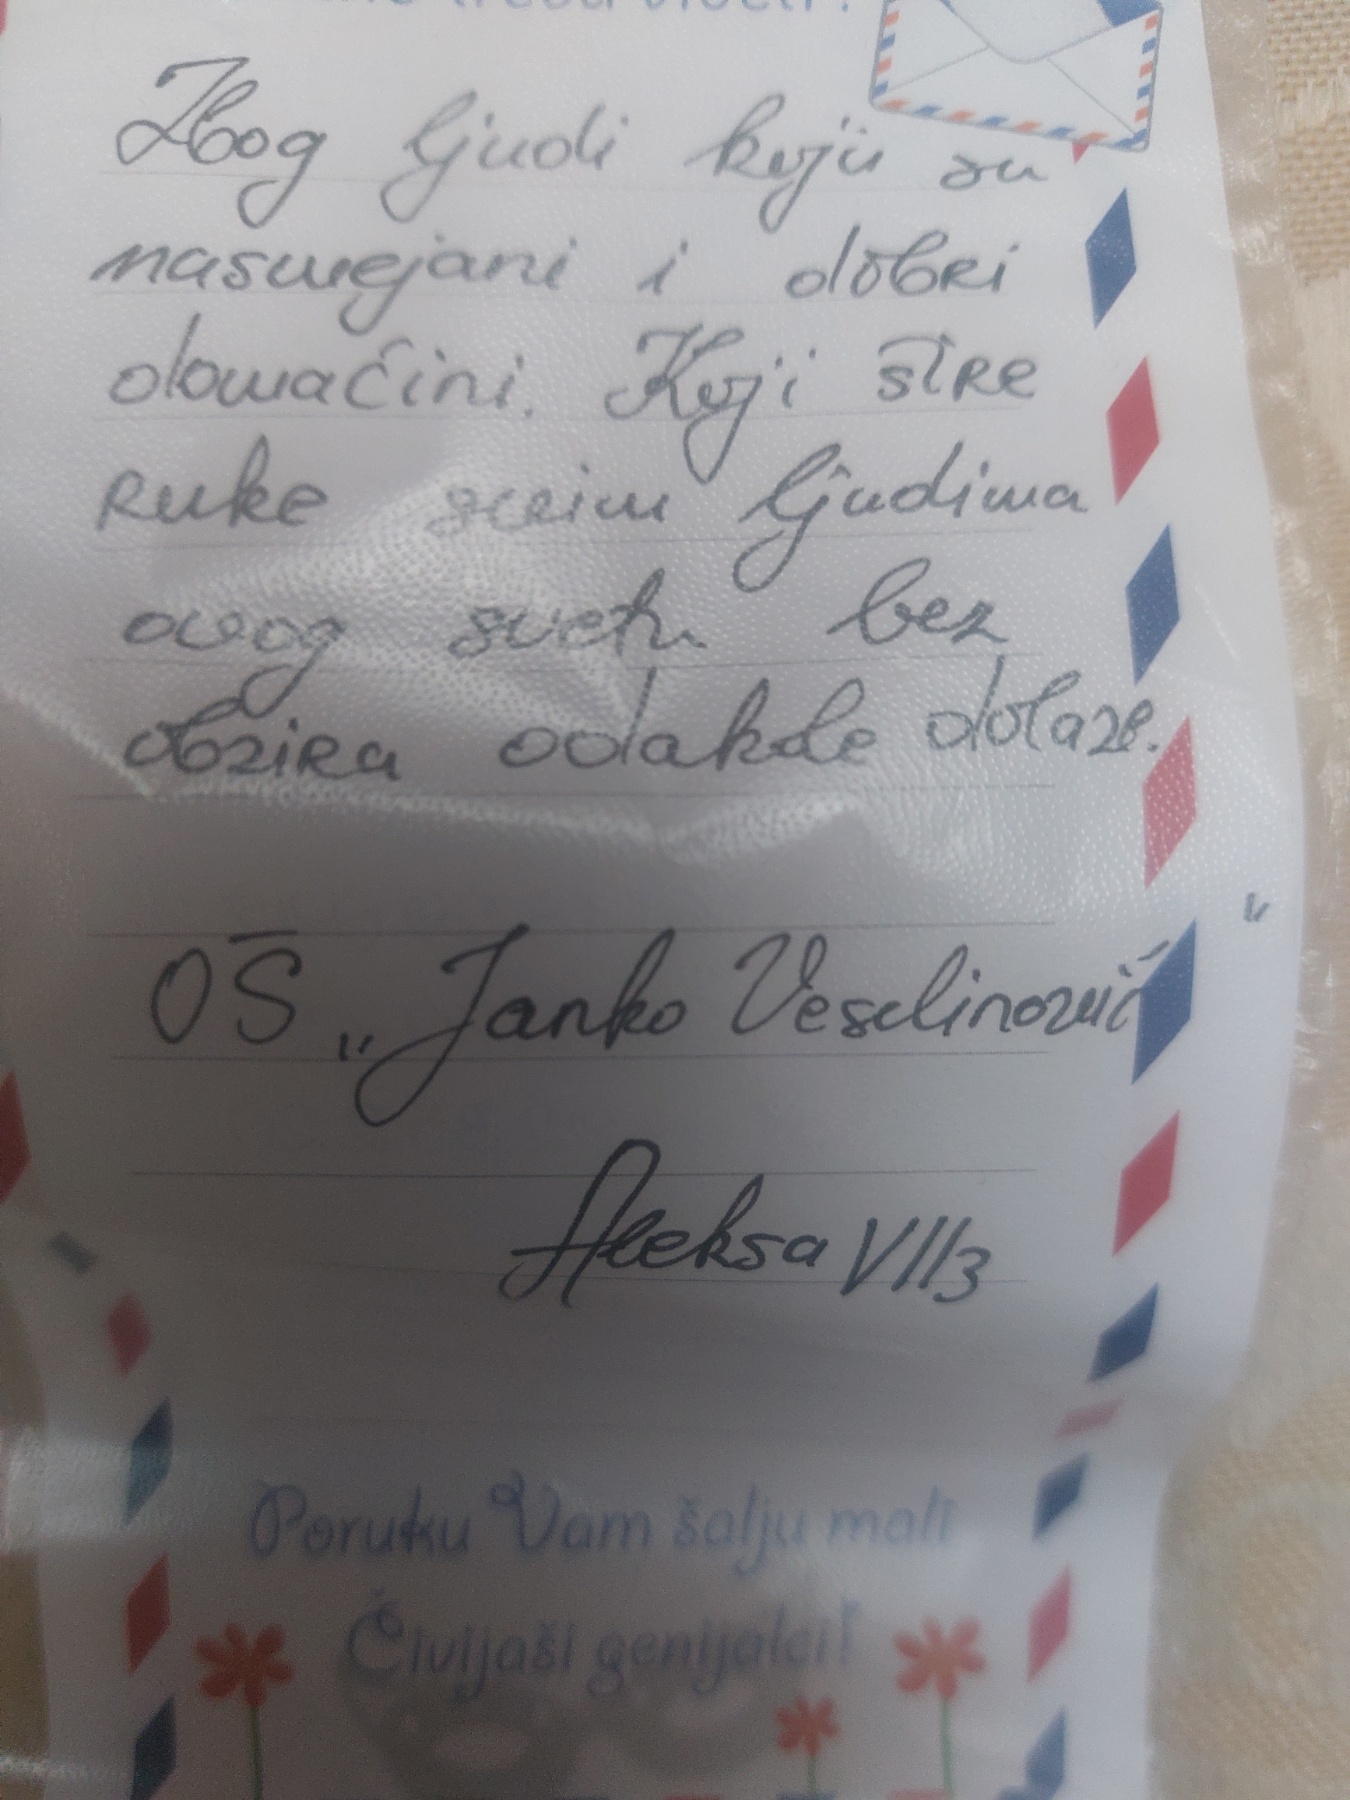 treba videti?
Zbog ljudi koji su
nasmejani i dobri
domaćini. Koji šire
ruke svim ljudima
ovog sveta bez
obzira odakle dolaze.
OŠ „Janko Veselinović"
Aleksa VII3
Poruku Vam šalju mali
Čivijaši genijalci!